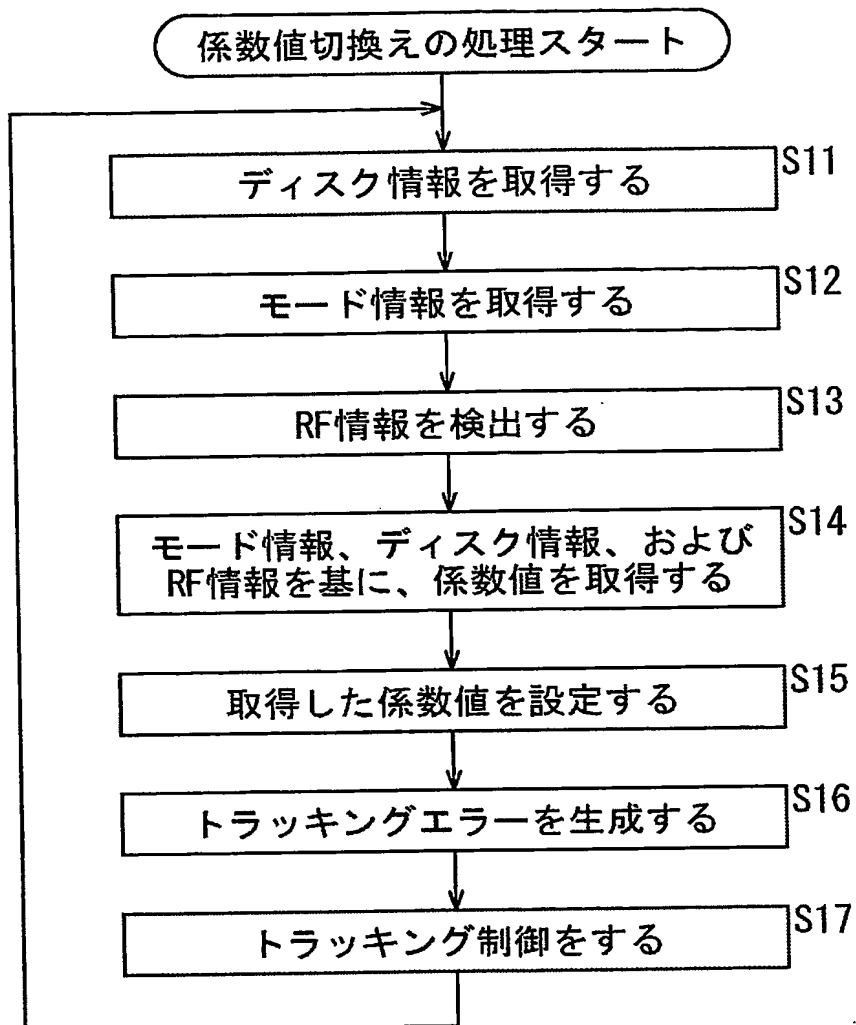 係数値切換えの処理スタート
ディスク情報を取得する
S11
モード情報を取得する
S12
RF情報を検出する
S13
モード情報、ディスク情報、および
RF情報を基に、係数値を取得する
S14
取得した係数値を設定する
S15
トラッキングエラーを生成する
S16
トラッキング制御をする
S17